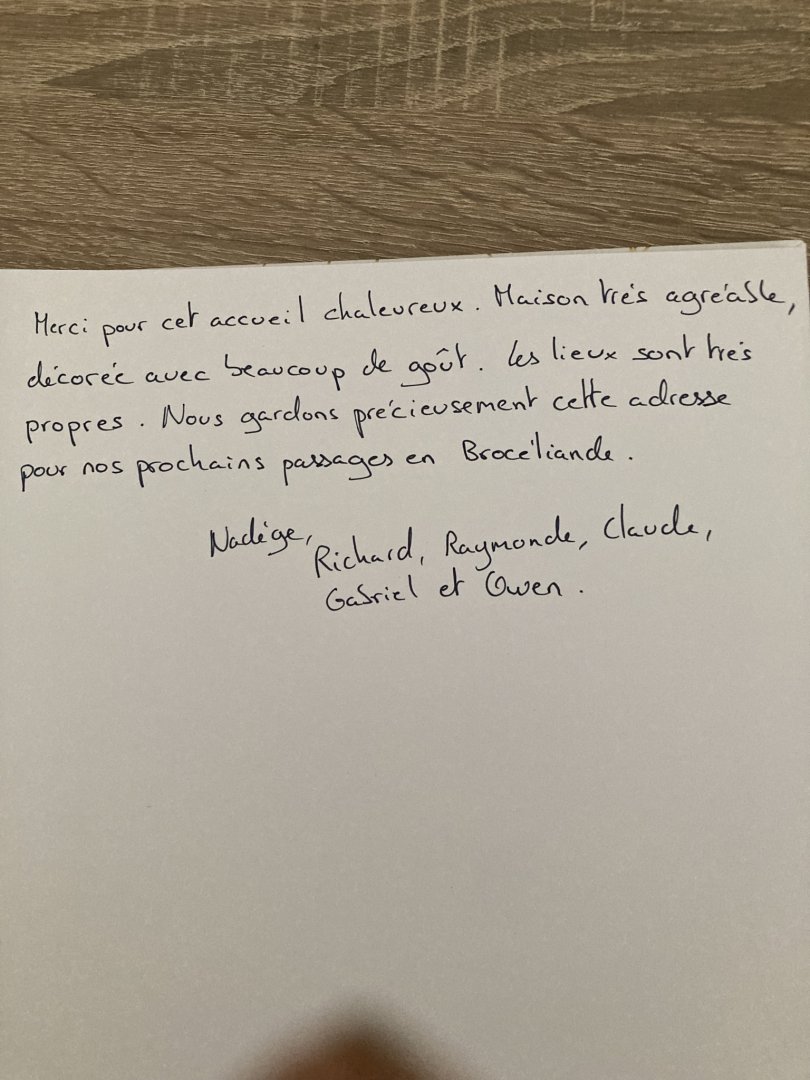 Merci pour cet accueil chaleureux. Maison très agréable,
décorée avec beaucoup de goût. Les lieux sont très
propres. Nous gardons précieusement cette adresse
pour nos prochains passages en Brocéliande.
Nadège,
Richard, Raymonde, Claude,
Gabriel et Owen.